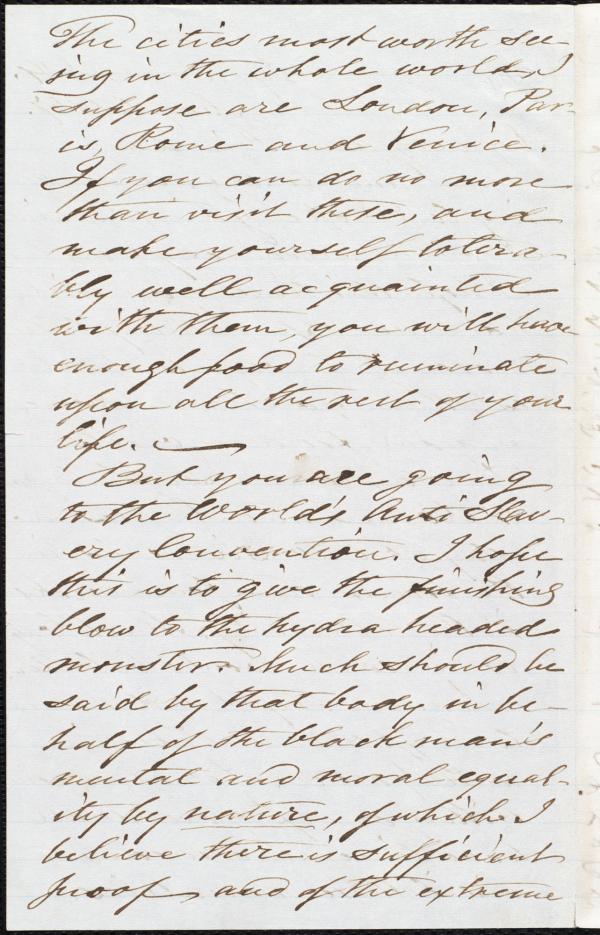 The cities most worth see-
ing in the whole world, I
suppose are London, Par-
is, Rome and Venice.
If you can do no more
than visit these, and
make yourself tolera-
bly well acquainted
with them, you will have
enough food to ruminate
upon all the rest of your
life.
But you are going
to the World's Anti Slav-
ery Convention. I hope
this is to give the finishing
blow to the hydra headed
monster. Much should be
said by that body in be-
half of the black man's
mental and moral equal-
ity by nature, of which I
believe there is sufficient
proof, and of the extreme